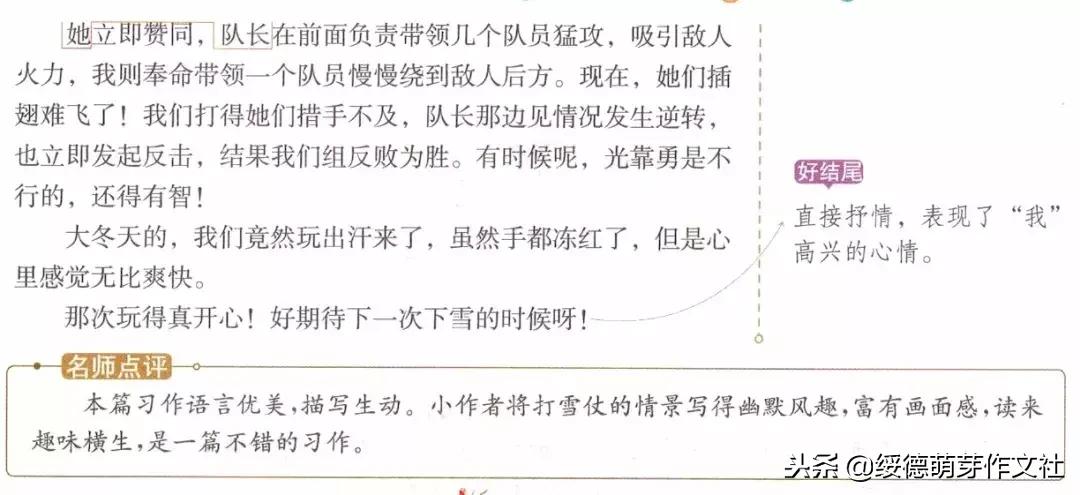 她立即赞同，队长在前面负责带领几个队员猛攻，吸引敌人
火力，我则奉命带领一个队员慢慢绕到敌人后方。现在，她们插
翅难飞了！我们打得她们措手不及，队长那边见情况发生逆转，
也立即发起反击，结果我们组反败为胜。有时候呢，光靠勇是不
行的，还得有智！
大冬天的，我们竟然玩出汗来了，虽然手都冻红了，但是心
里感觉无比爽快。
那次玩得真开心！好期待下一次下雪的时候呀！
好结尾
直接抒情，表现了“我”
高兴的心情。
名师点评
本篇习作语言优美，描写生动。小作者将打雪仗的情景写得幽默风趣，富有画面感，读来
趣味横生，是一篇不错的习作。
头条 @绥德萌芽作文社